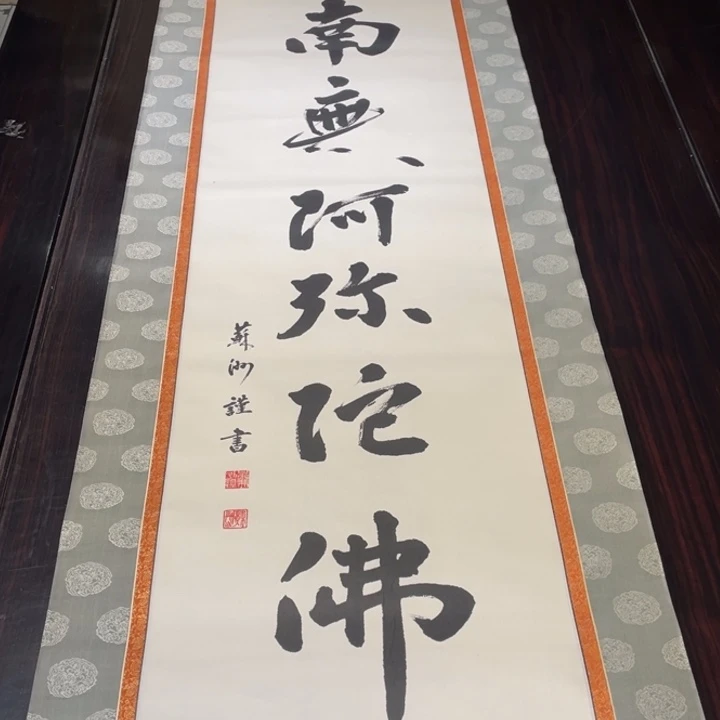 南無阿弥陀佛
蘇洲謹書